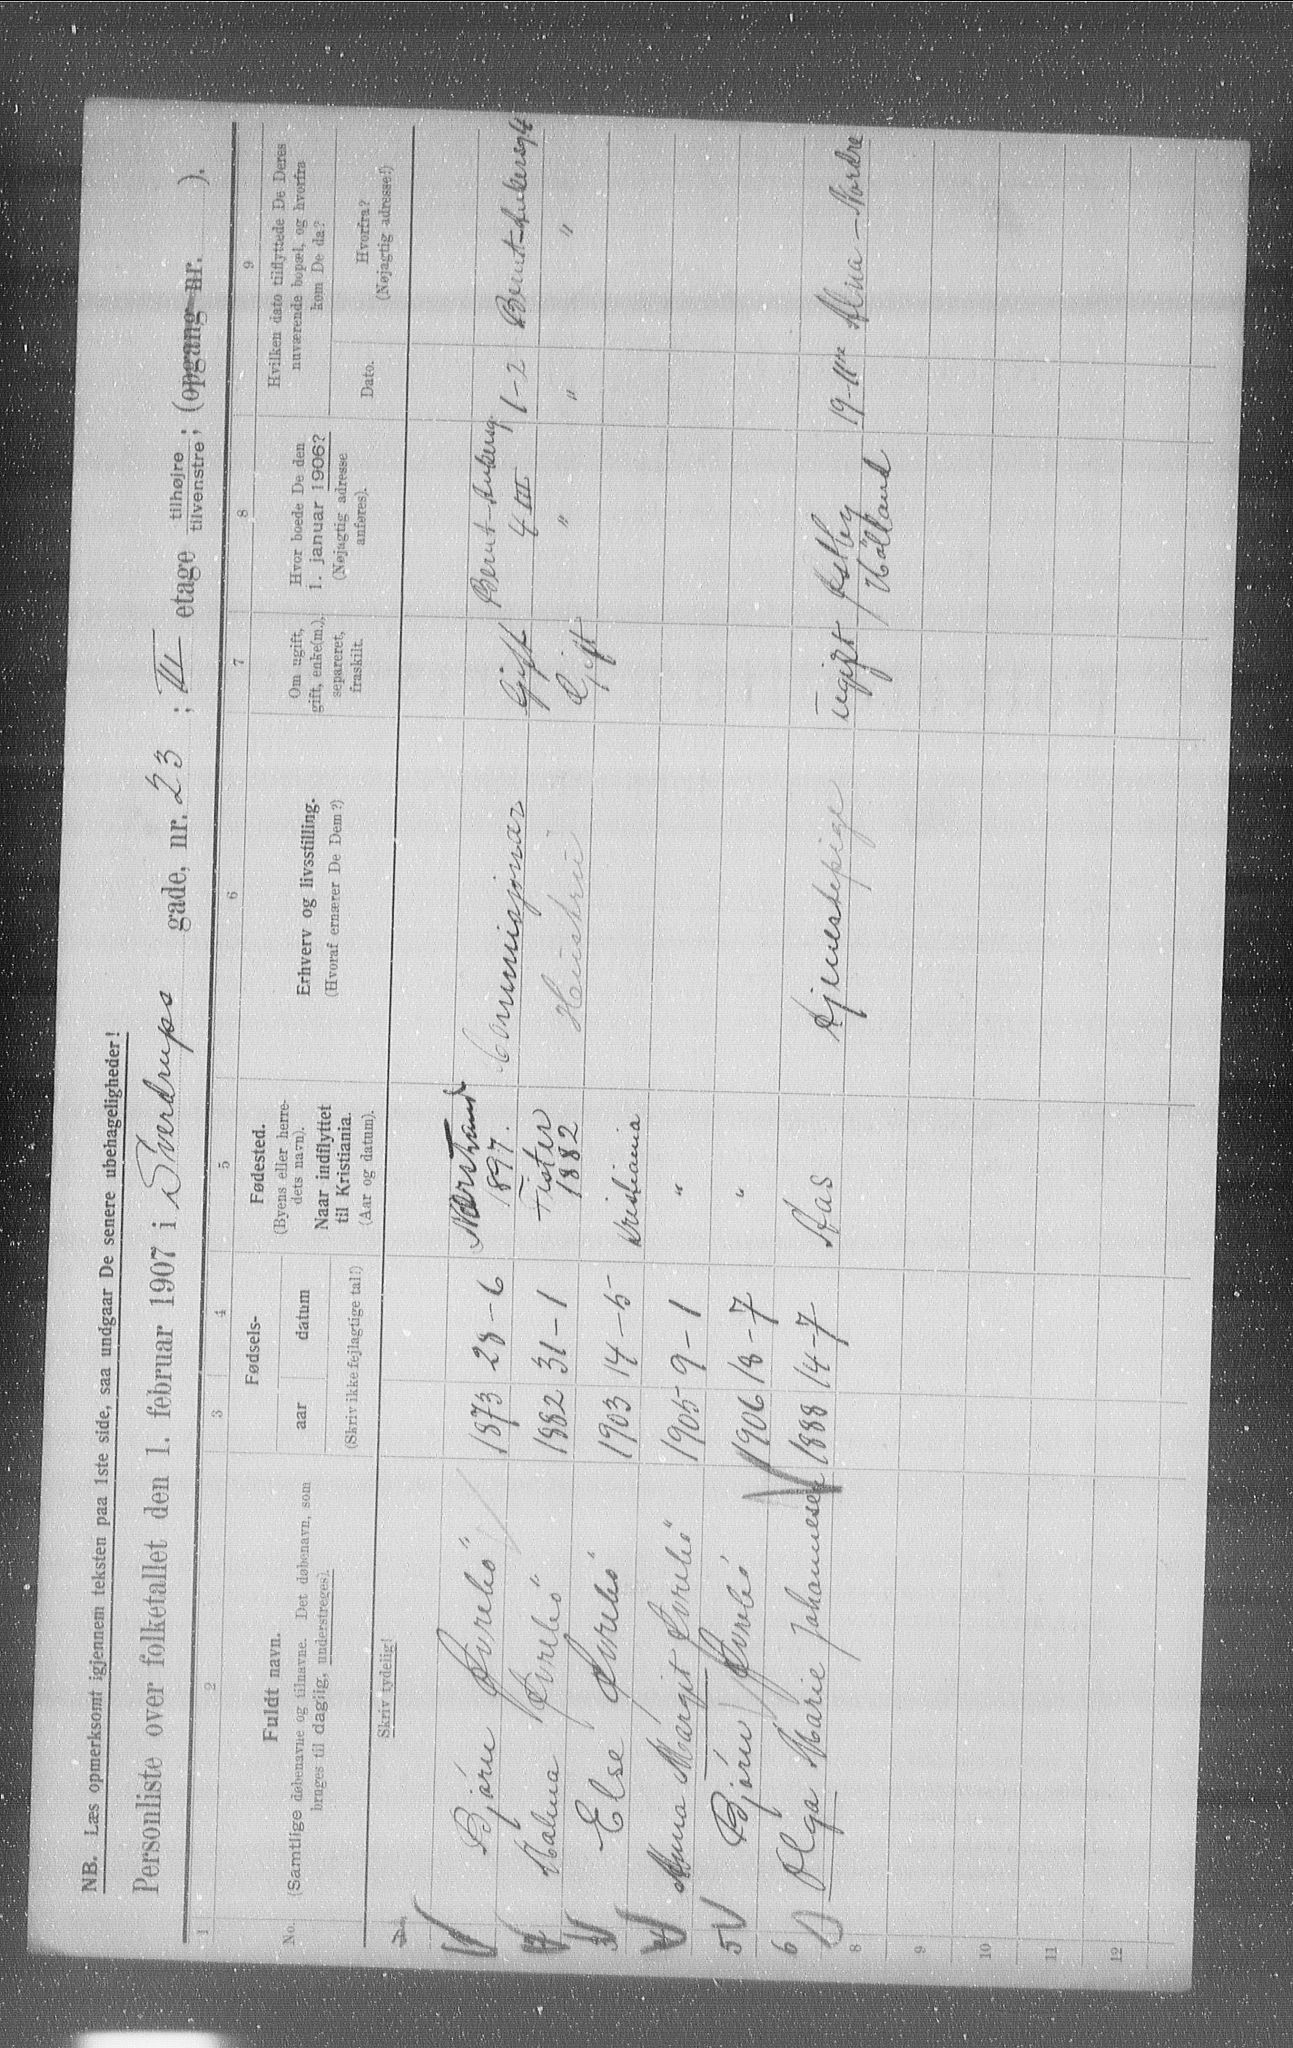 NB. Læs opmerksomt igjennem teksten paa 1ste side, saa undgaar De senere ubehageligheder!
Personliste over folketallet den 1. februar 1907 i Sverdrups gade, nr. 23 ; III etage tilhøjre / tilvenstre ; (opgang nr. ).
1 2 3 4 5 6 7 8 9
No.
Fuldt navn.
(Samtlige døbenavne og tilnavne. Det døbenavn, som
bruges til daglig, understreges).
Skriv tydelig!
Fødsels-
aar datum
(Skriv ikke fejlagtige tal!)
Fødested.
(Byens eller herre-
dets navn).
Naar indflyttet
til Kristiania.
(Aar og datum).
Erhverv og livsstilling.
(Hvoraf ernærer De Dem?)
Om ugift,
gift, enke(m.),
separeret,
fraskilt.
Hvor boede De den
1. januar 1906?
(Nøjagtig adresse
anføres).
Hvilken dato tilflyttede De Deres
nuværende bopæl, og hvorfra
kom De da?
Dato.
Hvorfra?
(Nøjagtig adresse!)
1 Bjørn 1873 28-6 Nærstrand 1897. Commisjonær Gift Bernt Ankersg. 4 III 1-2 Bernt Ankersg 4
2 Malina 1882 31-1 Fister 1882 Hustru Gift " " "
3 Else 1903 14-5 Kristiania
4 Anna Margit 1905 9-1 "
5 Bjørn 1906 18-7 "
6 Olga Marie Johannesen 1888 14-7 Aas Tjenestepige ugift 19-11 Alna - Nordre
8
9
10
11
12